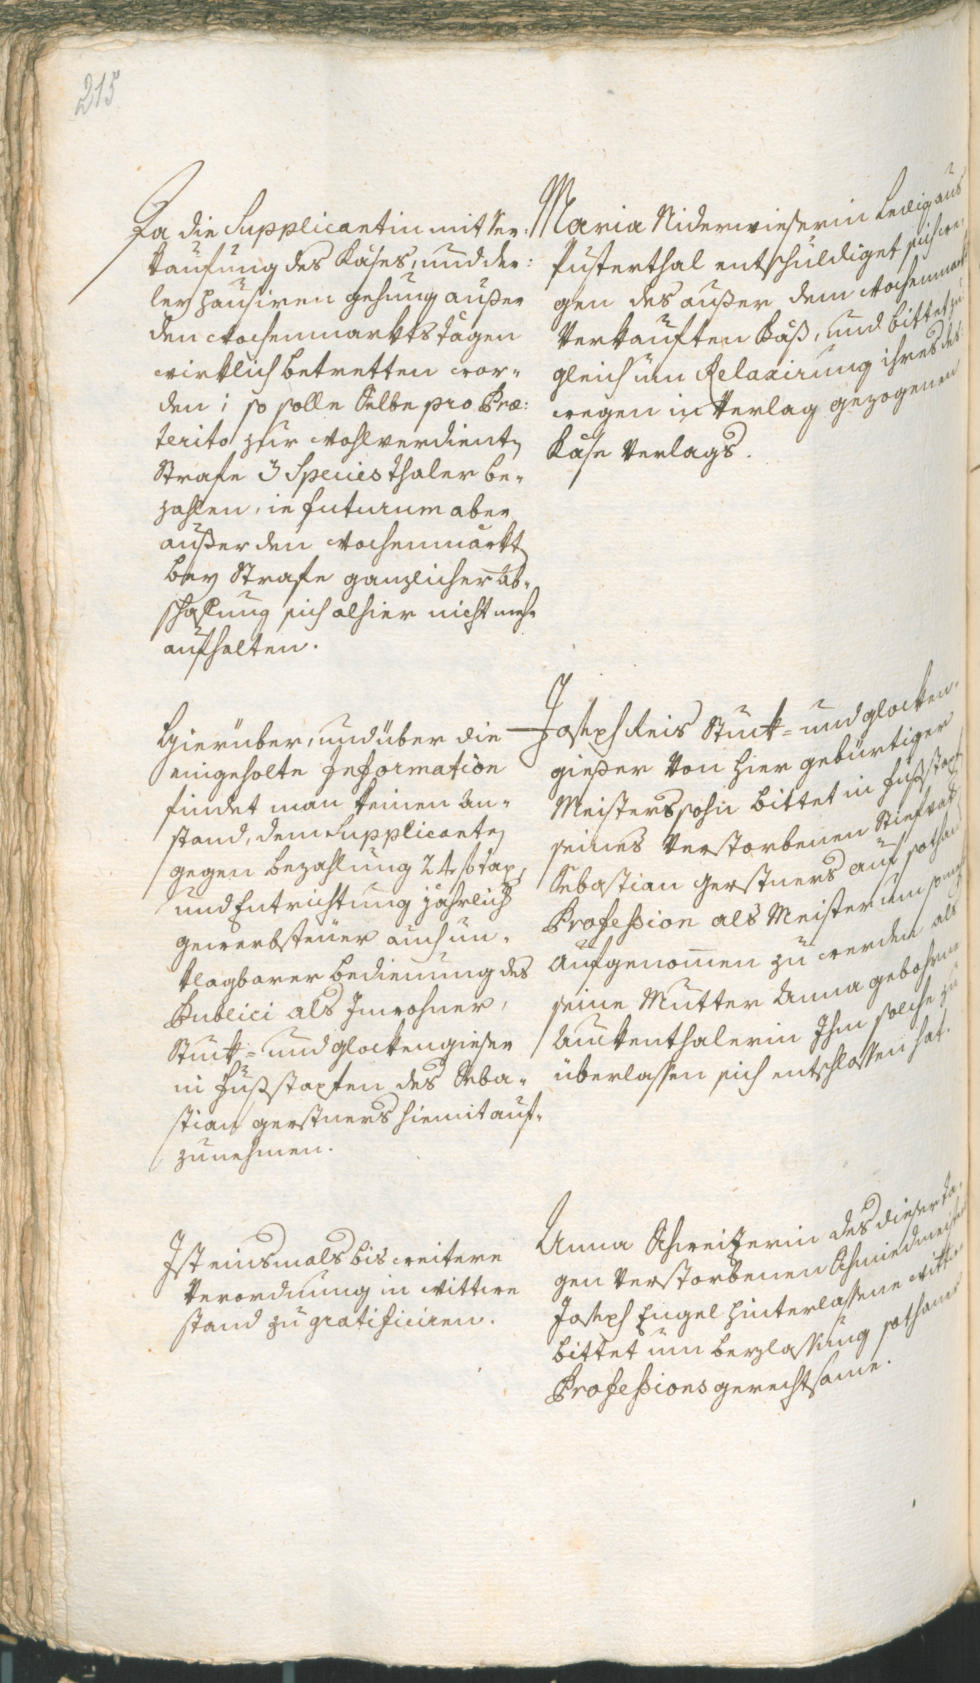 215
Da die Supplicantin mit Ver-
kaufung des Käses, und der:
ley hausiren gehung außer
den Wochenmarktstägen
wirklich betretten wor-
den; so solle Selbe pro Præ:
terito zur wohlverdienten
Strafe 3 Species Thaler be-
zahlen, in futurum aber
außer den Wochenmarkt
bey Strafe gänzlicher Ab-
schaffung sich alhier nicht mehr
aufhalten.
Maria Niderwieserin ledig aus
Pusterthal entschuldiget sich we-
gen des außer dem Wochenmarkt
verkauften Käß, und bittet zu
gleich um Relaxirung ihres des
wegen in Verlag gezogenen
Käse Verlags.
Hierüber, und über die
eingeholte Information
findet man keinen An-
stand, dem Supplicanten
gegen Bezahlung 24 f Tax,
und Entrichtung jährlich
Gewerbsteuer auch un-
klagbarer Bedienung des
Publici als Inwohner,
Stuck- und Glockengieser
in Fußstapfen des Seba-
stian Gerstners hiemit auf-
zunehmen.
Joseph Reis Stuck- und Glocken-
gießer von hier gebürtiger
Meisterssohn bittet in Fußstapfen
seines verstorbenen Stiefvaters
Sebastian Gerstners auf sothane
Profeßion als Meister um so mehr
aufgenommen zu werden als
seine Mutter Anna gebohrne
Auckenthalerin Ihm solche zu
überlassen sich entschlossen hat.
Ist einsmals bis weitere
Verordnung in Wittwe
stand zu gratificiren.
Anna Schweitzerin des dieser Tä-
gen verstorbenen Schmiedmeister
Joseph Engel hinterlassene Wittwe
bittet um Verlassung sothaner
Profeßionsgerechtsame.